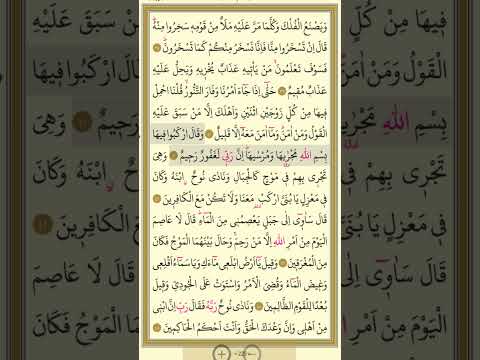 وَيَصْنَعُ الْفُلْكَ وَكُلَّمَا مَرَّ عَلَيْهِ مَلَاٌ مِنْ قَوْمِهِ سَخِرُوا مِنْهُ
قَالَ اِنْ تَسْخَرُوا مِنَّا فَاِنَّا نَسْخَرُ مِنْكُمْ كَمَا تَسْخَرُونَ ۝
فَسَوْفَ تَعْلَمُونَ مَنْ يَأْتِيهِ عَذَابٌ يُخْزِيهِ وَيَحِلُّ عَلَيْهِ
عَذَابٌ مُقِيمٌ ۝ حَتّٰى اِذَا جَاءَ اَمْرُنَا وَفَارَ التَّنُّورُ قُلْنَا احْمِلْ
فِيهَا مِنْ كُلٍّ زَوْجَيْنِ اثْنَيْنِ وَاَهْلَكَ اِلَّا مَنْ سَبَقَ عَلَيْهِ
الْقَوْلُ وَمَنْ اٰمَنَ وَمَا اٰمَنَ مَعَهُ اِلَّا قَلِيلٌ ۝ وَقَالَ ارْكَبُوا فِيهَا
بِسْمِ اللّٰهِ مَجْرٰيهَا وَمُرْسٰيهَا اِنَّ رَبِّى لَغَفُورٌ رَحِيمٌ ۝ وَهِىَ
تَجْرِى بِهِمْ فِى مَوْجٍ كَالْجِبَالِ وَنَادٰى نُوحٌ ابْنَهُ وَكَانَ
فِى مَعْزِلٍ يَا بُنَىَّ ارْكَبْ مَعَنَا وَلَا تَكُنْ مَعَ الْكَافِرِينَ ۝
قَالَ سَاٰوِى اِلٰى جَبَلٍ يَعْصِمُنِى مِنَ الْمَاءِ قَالَ لَا عَاصِمَ
الْيَوْمَ مِنْ اَمْرِ اللّٰهِ اِلَّا مَنْ رَحِمَ وَحَالَ بَيْنَهُمَا الْمَوْجُ فَكَانَ
مِنَ الْمُغْرَقِينَ ۝ وَقِيلَ يَا اَرْضُ ابْلَعِى مَاءَكِ وَيَا سَمَاءُ اَقْلِعِى
وَغِيضَ الْمَاءُ وَقُضِىَ الْاَمْرُ وَاسْتَوَتْ عَلَى الْجُودِىِّ وَقِيلَ
بُعْدًا لِلْقَوْمِ الظَّالِمِينَ ۝ وَنَادٰى نُوحٌ رَبَّهُ فَقَالَ رَبِّ اِنَّ ابْنِى
مِنْ اَهْلِى وَاِنَّ وَعْدَكَ الْحَقُّ وَاَنْتَ اَحْكَمُ الْحَاكِمِينَ ۝